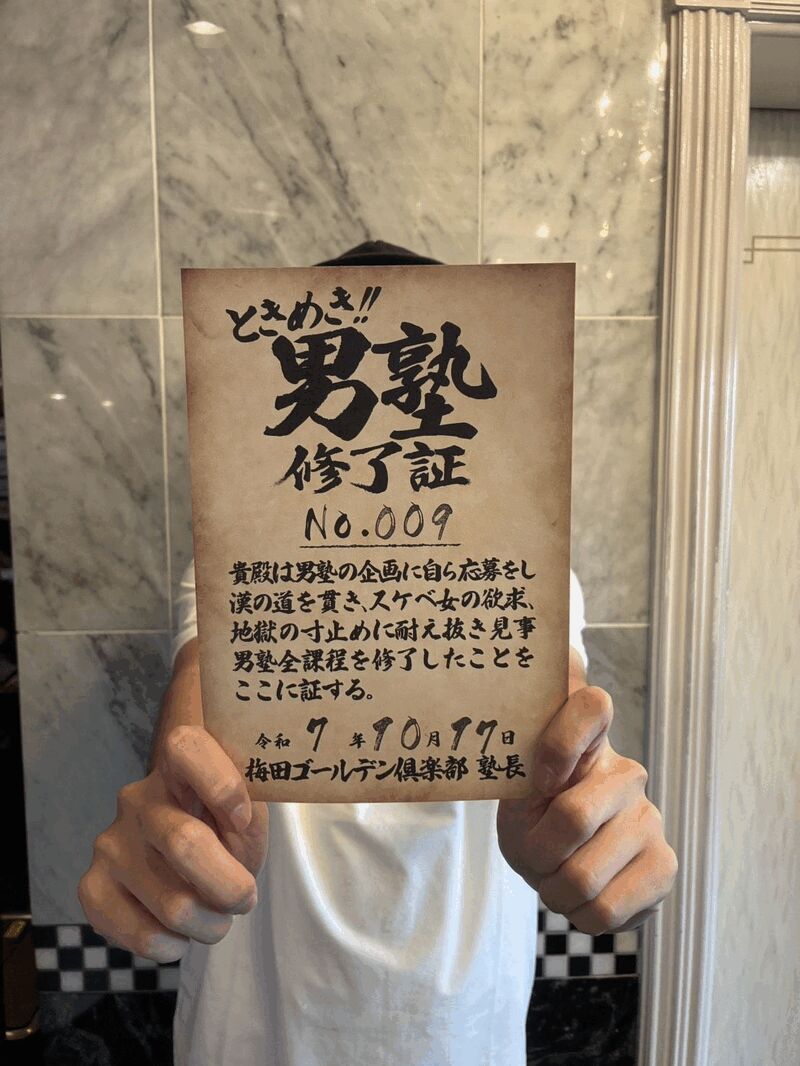 ときめき!!
男塾
修了証
No.009
貴殿は男塾の企画に自ら応募をし
漢の道を貫き、スケベ女の欲求、
地獄の寸止めに耐え抜き見事
男塾全課程を修了したことを
ここに証する。
令和 7 年 10月 17日
梅田ゴールデン倶楽部 塾長